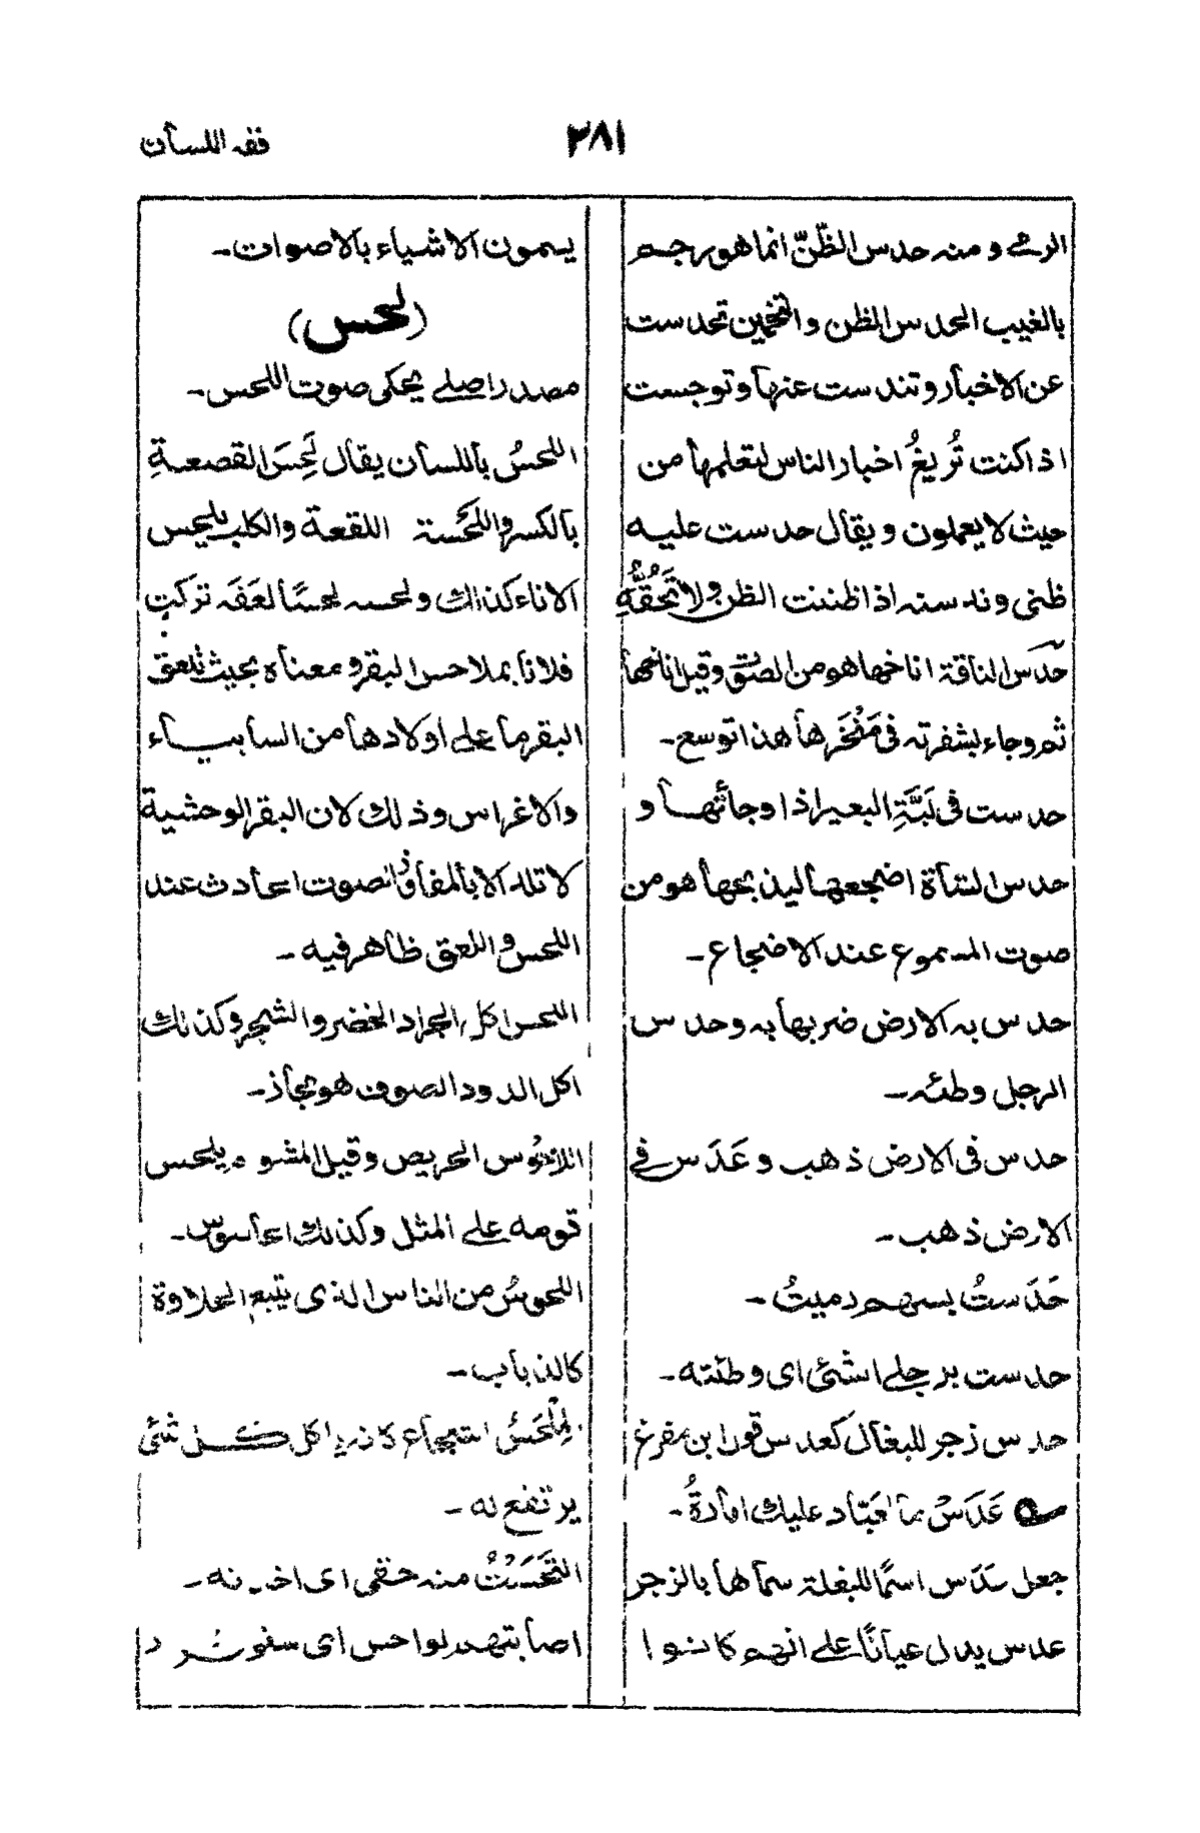 فقه اللسان
٣٨١
الرمے و منه حدس الظّنّ انما هو رجم
بالغيب الحدس الظن والتخمين تحدست
عن الاخبار وتندست عنها وتوجست
اذا كنت تُريغُ اخبار الناس لتعلمها من
حيث لا يعملون ويقال حدست عليه
ظنى وندسته اذا ظننت الظن ولا تَحُقُّهُ
حدس الناقة اناخها هو من الصق وقيل اناخها
ثم وجاء بشفرته فى مَنْخَرها هذا توسع۔
حدست فى لَبَّةِ البعير اذا وجأتها و
حدس الشاة اضجعها ليذبحها هو من
صوت المسموع عند الاضجاع۔
حدس به الارض ضربها به وحدس
الرجل وطئه۔
حدس فى الارض ذهب و عَدَس فے
الارض ذهب۔
حَدَستُ بسهم رميتُ۔
حدست برجلے الشئ اى وطئته۔
حدس زجر للبغال كعدس قول ابن مفرغ
عَدَسْ ما لعَبّاد عليك امارةُ۔
جعل عَدَس اسمًا للبغلة سماها بالزجر
عدس يدل عيانًا علے انهم كانوا
يسمون الاشياء بالاصوات۔
(لحس)
مصدر اصلے يحكى صوت اللحس۔
اللحسُ باللسان يقال لَحِسَ القصعةِ
بالكسر واللَحْسة اللقعة والكلب يلحس
الاناء كذالك ولحسه لحسًا لعَفَه تركت
فلانا بملاحس البقر و معناه بحيث تلعق
البقر ما علے اولادها من السابياء
والاغراس وذلك لان البقر الوحشية
لا تلد الا بالمفاوز الصوت الحادث عند
اللحس واللعق ظاهر فيه۔
اللحس اكل الجراد الخضر والشجر وكذلك
اكل الدود الصوف هو مجاز۔
اللاحوس الحريص وقيل المشوم يلحس
قومه علے المثل وكذلك الحاسوس۔
اللحوسُ من الناس الذى يتبع الحلاوة
كالذباب۔
المِلْحَسُ الشجاع كانه ياكل كل شئ
يرتفع له۔
التَحَسْتُ منه حقى اى اخذته۔
اصابتهم لواحس اى سنون شداد